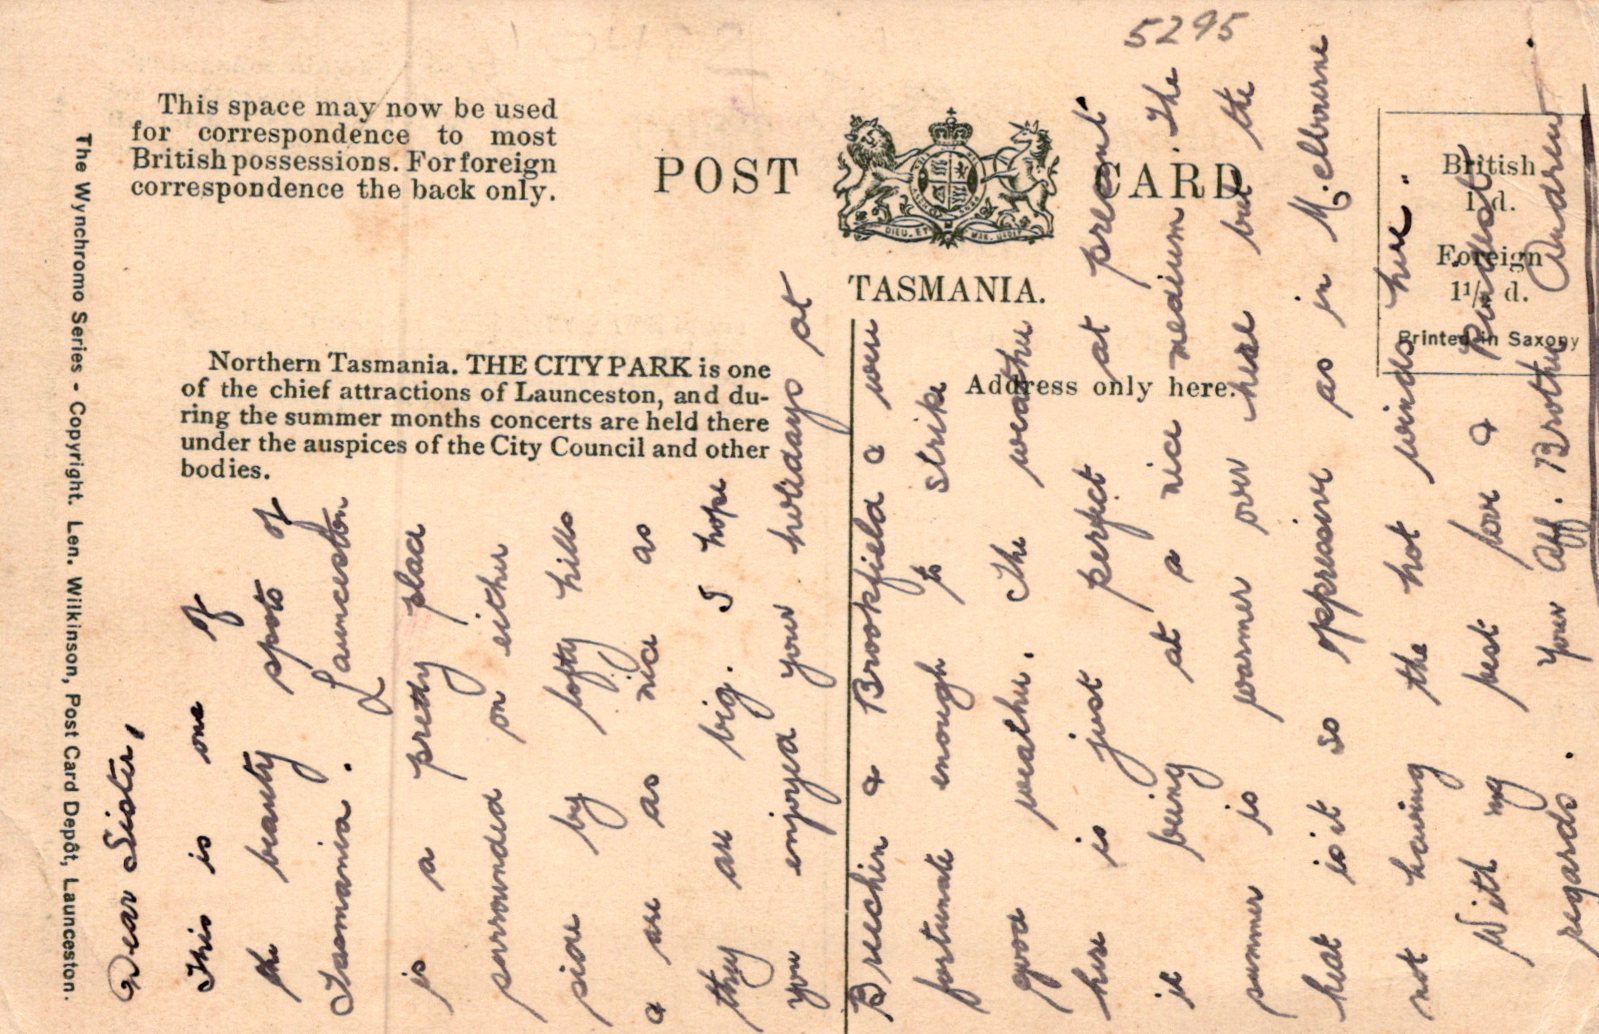 5295
This space may now be used
for correspondence to most
British possessions. For foreign
correspondence the back only.
POST CARD
DIEU. ET MON. DROIT
TASMANIA.
British
1 d.
Foreign
1 1/2 d.
Printed in Saxony
Northern Tasmania. THE CITY PARK is one
of the chief attractions of Launceston, and du-
ring the summer months concerts are held there
under the auspices of the City Council and other
bodies.
Address only here.
The Wynchromo Series - Copyright. Len. Wilkinson, Post Card Depôt, Launceston.
Dear Sister,
This is one of
the beauty spots of
Tasmania. Launceston
is a pretty place
surrounded on either
side by lofty hills
& are as nice as
they are big. I hope
you enjoyed your holidays at
Brechin & Brookfield & were
fortunate enough to strike
good weather. The weather
here is just perfect at present
it being at a nice medium. The
summer is warmer over here but the
heat is'it so oppressive as in Melbourne
not having the hot winds here.
With my best love & kindest
regards. Your Aff. Brother Andrew